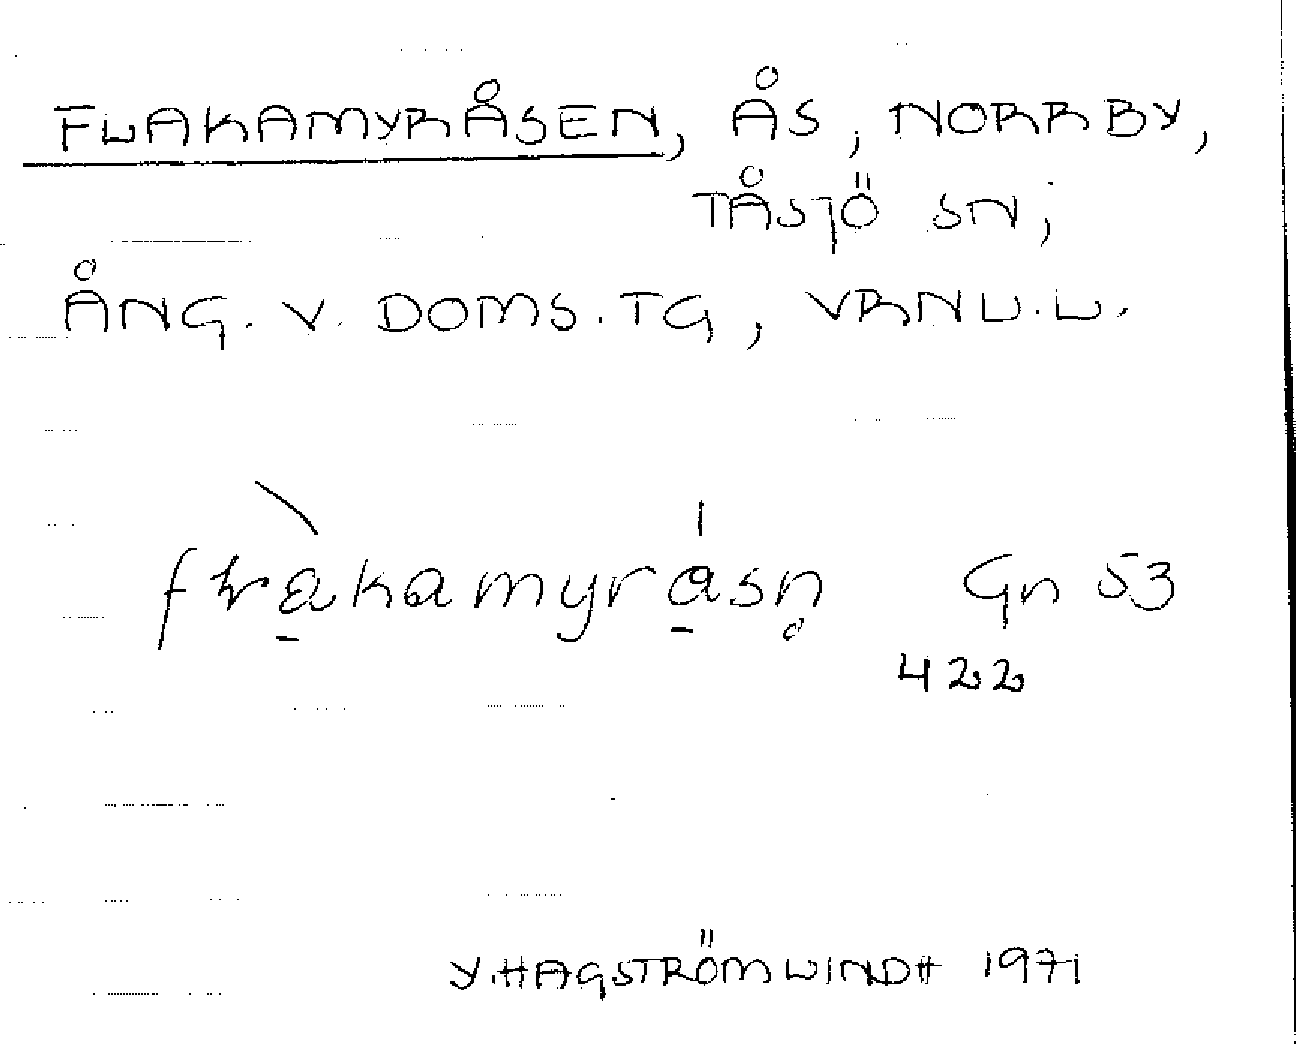 FLAKAMYRÅSEN, ÅS, NORRBY,
TÅSJÖ SN;
ÅNG. V. DOMS. TG, VRNL.L.
Gn 53
422
Y. HAGSTRÖM WINDH 1971